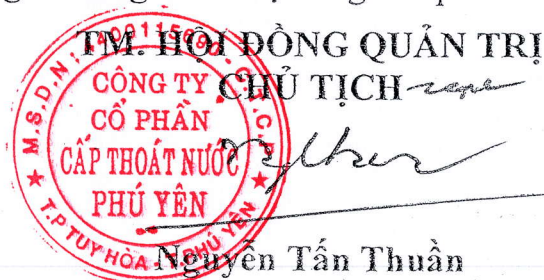 TM. HỘI ĐỒNG QUẢN TRỊ
CHỦ TỊCH
M.S.D.N: 4400115690 - C.T.C.P
CÔNG TY
CỔ PHẦN
CẤP THOÁT NƯỚC
PHÚ YÊN
T.P TUY HÒA - T. PHÚ YÊN
Nguyễn Tấn Thuần